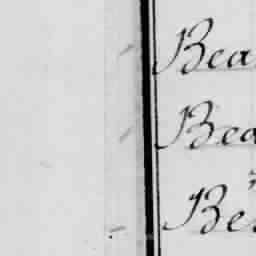 Bea
Bea
Be